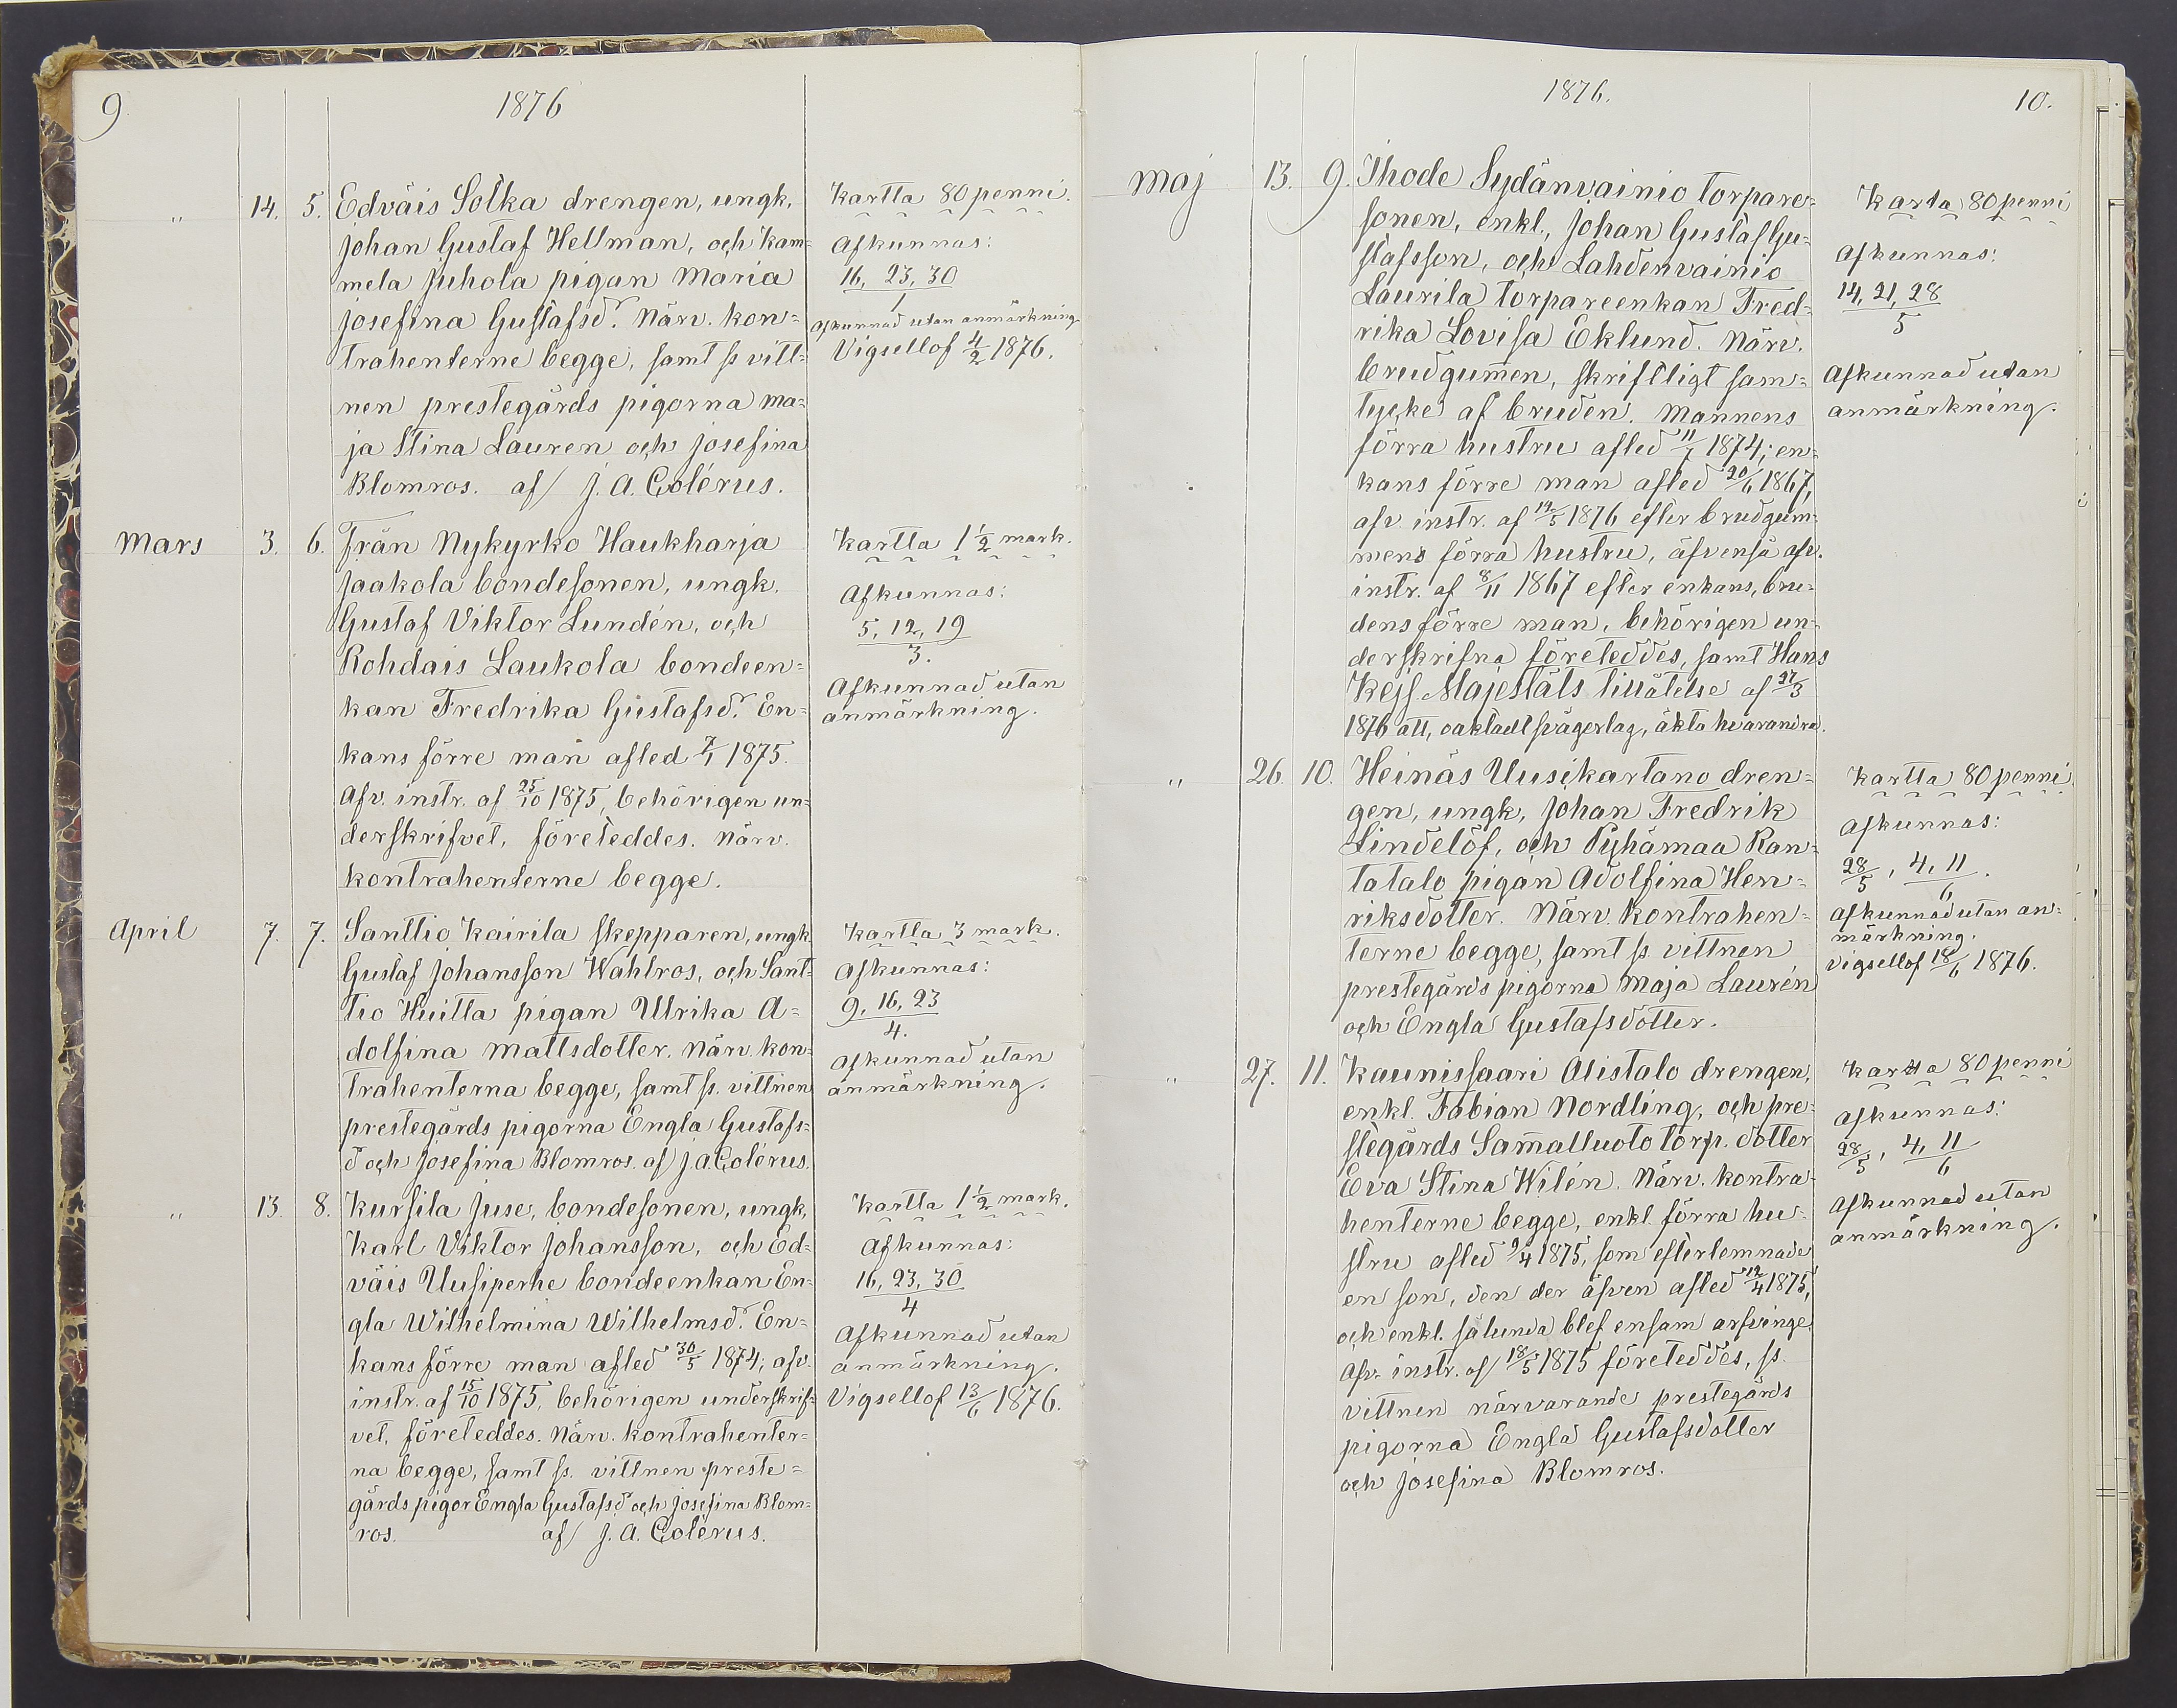 9.
1876
" 14. 5. Edväis Sölka drengen, ungk,
Johan Gustaf Hellman, och Kam=
mela Juhola pigan Maria
Josefina Gustafsd. Närv. kon=
trahenterne begge, samt ss vitt=
nen prestegårds pigorna Ma=
ja Stina Lauren och Josefina
Blomros. af/ J. A. Colérus.
Kartta 80 penni.
Afkunnas:
16, 23, 30
1
Afkunnad utan anmärkning
Vigsellof 4/2 1876.
Mars 3. 6. Från Nykyrko Haukharja
Jaakola bondesonen, ungk.
Gustaf Viktor Lundén, och
Rohdais Laukola bondeen=
kan Fredrika Gustafsd. En=
kans förre man afled 7/1 1875.
Afv. instr. af 25/10 1875, behörigen un=
derskrifvet, företeddes. Närv.
kontrahenterne begge.
Kartta 1 1/2 mark.
Afkunnas:
5, 12, 19
3.
Afkunnad utan
anmärkning.
April 7. 7. Santtio Kairila skepparen, ungk.
Gustaf Johansson Wahlros, och Sant=
tio Huitta pigan Ulrika A=
dolfina Mattsdotter. Närv. kon=
trahenterna begge, samt ss. vittnen
prestegårds pigorna Engla Gustafs=
d och Josefina Blomros. af/ J. A. Colérus.
Kartta 3 mark.
Afkunnas:
9, 16, 23
4.
Afkunnad utan
anmärkning.
" 13. 8. Kursila Juse, bondesonen, ungk,
Karl Viktor Johansson, och Ed=
väis Uusiperhe bondeenkan En=
gla Wilhelmina Wilhelmsd. En=
kans förre man afled 30/5 1874; afv.
instr. af 15/10 1875, behörigen underskrif=
vet, företeddes. Närv. kontrahenter=
na begge, samt ss. vittnen preste=
gårds pigor Engla Gustafsd och Josefina Blom=
ros. af/ J. A. Colérus.
Kartta 1 1/2 mark.
Afkunnas:
16, 23, 30
4
Afkunnad utan
anmärkning.
Vigsellof 13/6 1876.
1876.
10.
Maj 13. 9. Ihode Sydänvainio torpare=
sonen, enkl., Johan Gustaf Gu=
stafsson, och Lahdenvainio
Laurila torpareenkan Fred=
rika Lovisa Eklund. Närv.
brudgummen, skriftligt sam=
tycke af bruden. Mannens
förra hustru afled 11/7 1874; en=
kans förre man afled 20/6 1867,
afv instr. af 12/5 1876 efter brudgum=
mens förra hustru, äfvenså afv.
instr. af 8/11 1867 efter enkans, bru=
dens förre man, behörigen un=
derskrifna företeddes, samt Hans
Kejs. Majestäts tillåtelse af 27/3
1876 att, oaktadt svågerlag, äkta hvarandra.
Karta 80 penni
Afkunnas:
14, 21, 28
5
Afkunnad utan
anmärkning.
" 26. 10. Heinäs Uusikartano dren=
gen, ungk, Johan Fredrik
Lindelöf, och Pyhämaa Ran=
tatalo pigan Adolfina Hen=
riksdotter. Närv. kontrahen=
terne begge, samt ss. vittnen
prestegårds pigorna Maja Laurén
och Engla Gustafsdotter.
Kartta 80 penni.
Afkunnas:
28/5, 4, 11.
6
Afkunnad utan an=
märkning.
Vigsellof 18/6 1876.
" 27. 11. Kaunissaari Alistalo drengen,
enkl. Fabian Nordling, och pre=
stegårds Sammalluoto torp. dotter
Eva Stina Wilén. Närv. kontra=
henterne begge, enkl. förra hu=
stru afled 9/4 1875, som efterlemnade
en son, den der äfven afled 12/4 1875,
och enkl. sålunda blef ensam arfvinge.
Afv. instr. af 18/5 1875 företeddes, ss.
vittnen närvarande prestegårds
pigorna Engla Gustafsdotter
och Josefina Blomros.
Kartta 80 penni
Afkunnas:
28/5, 4, 11
6
Afkunnad utan
anmärkning.